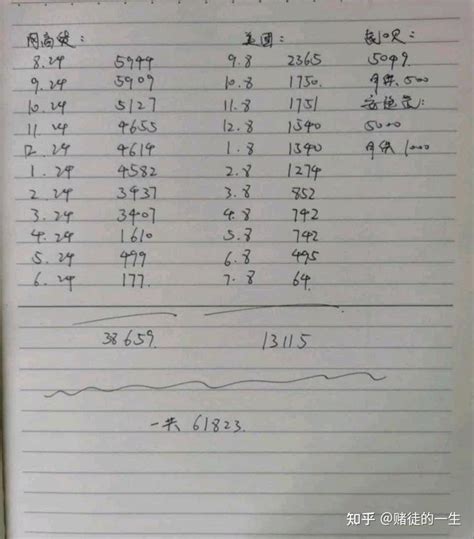 网商贷： 美团：
8.24 5944 9.8 2365 5049
9.24 5909 10.8 1750 月供500
10.24 5127 11.8 1751 安逸花：
11.24 4655 12.8 1540 5000
12.24 4614 1.8 1540 月供1000
1.24 4582 2.8 1274
2.24 3437 3.8 852
3.24 3407 4.8 742
4.24 1610 5.8 742
5.24 499 6.8 495
6.24 177. 7.8 64.
38659. 13115
一共 61823.
知乎 @赌徒的一生